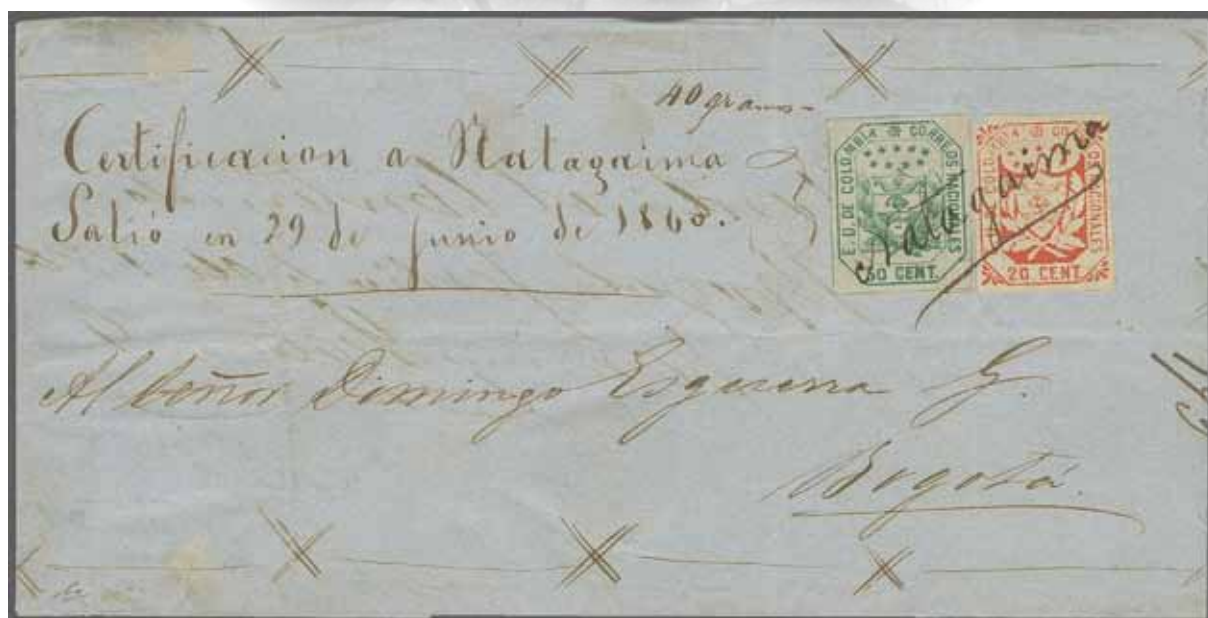 40 gramos
Certificacion a Natagaima
Salió en 29 de Junio de 1860.
E. U. DE COLOMBIA CORREOS NACIONALES
50 CENT.
E. U. DE COLOMBIA CORREOS NACIONALES
20 CENT.
Natagaima
Al Señor Domingo Esguerra G.
Bogotá.